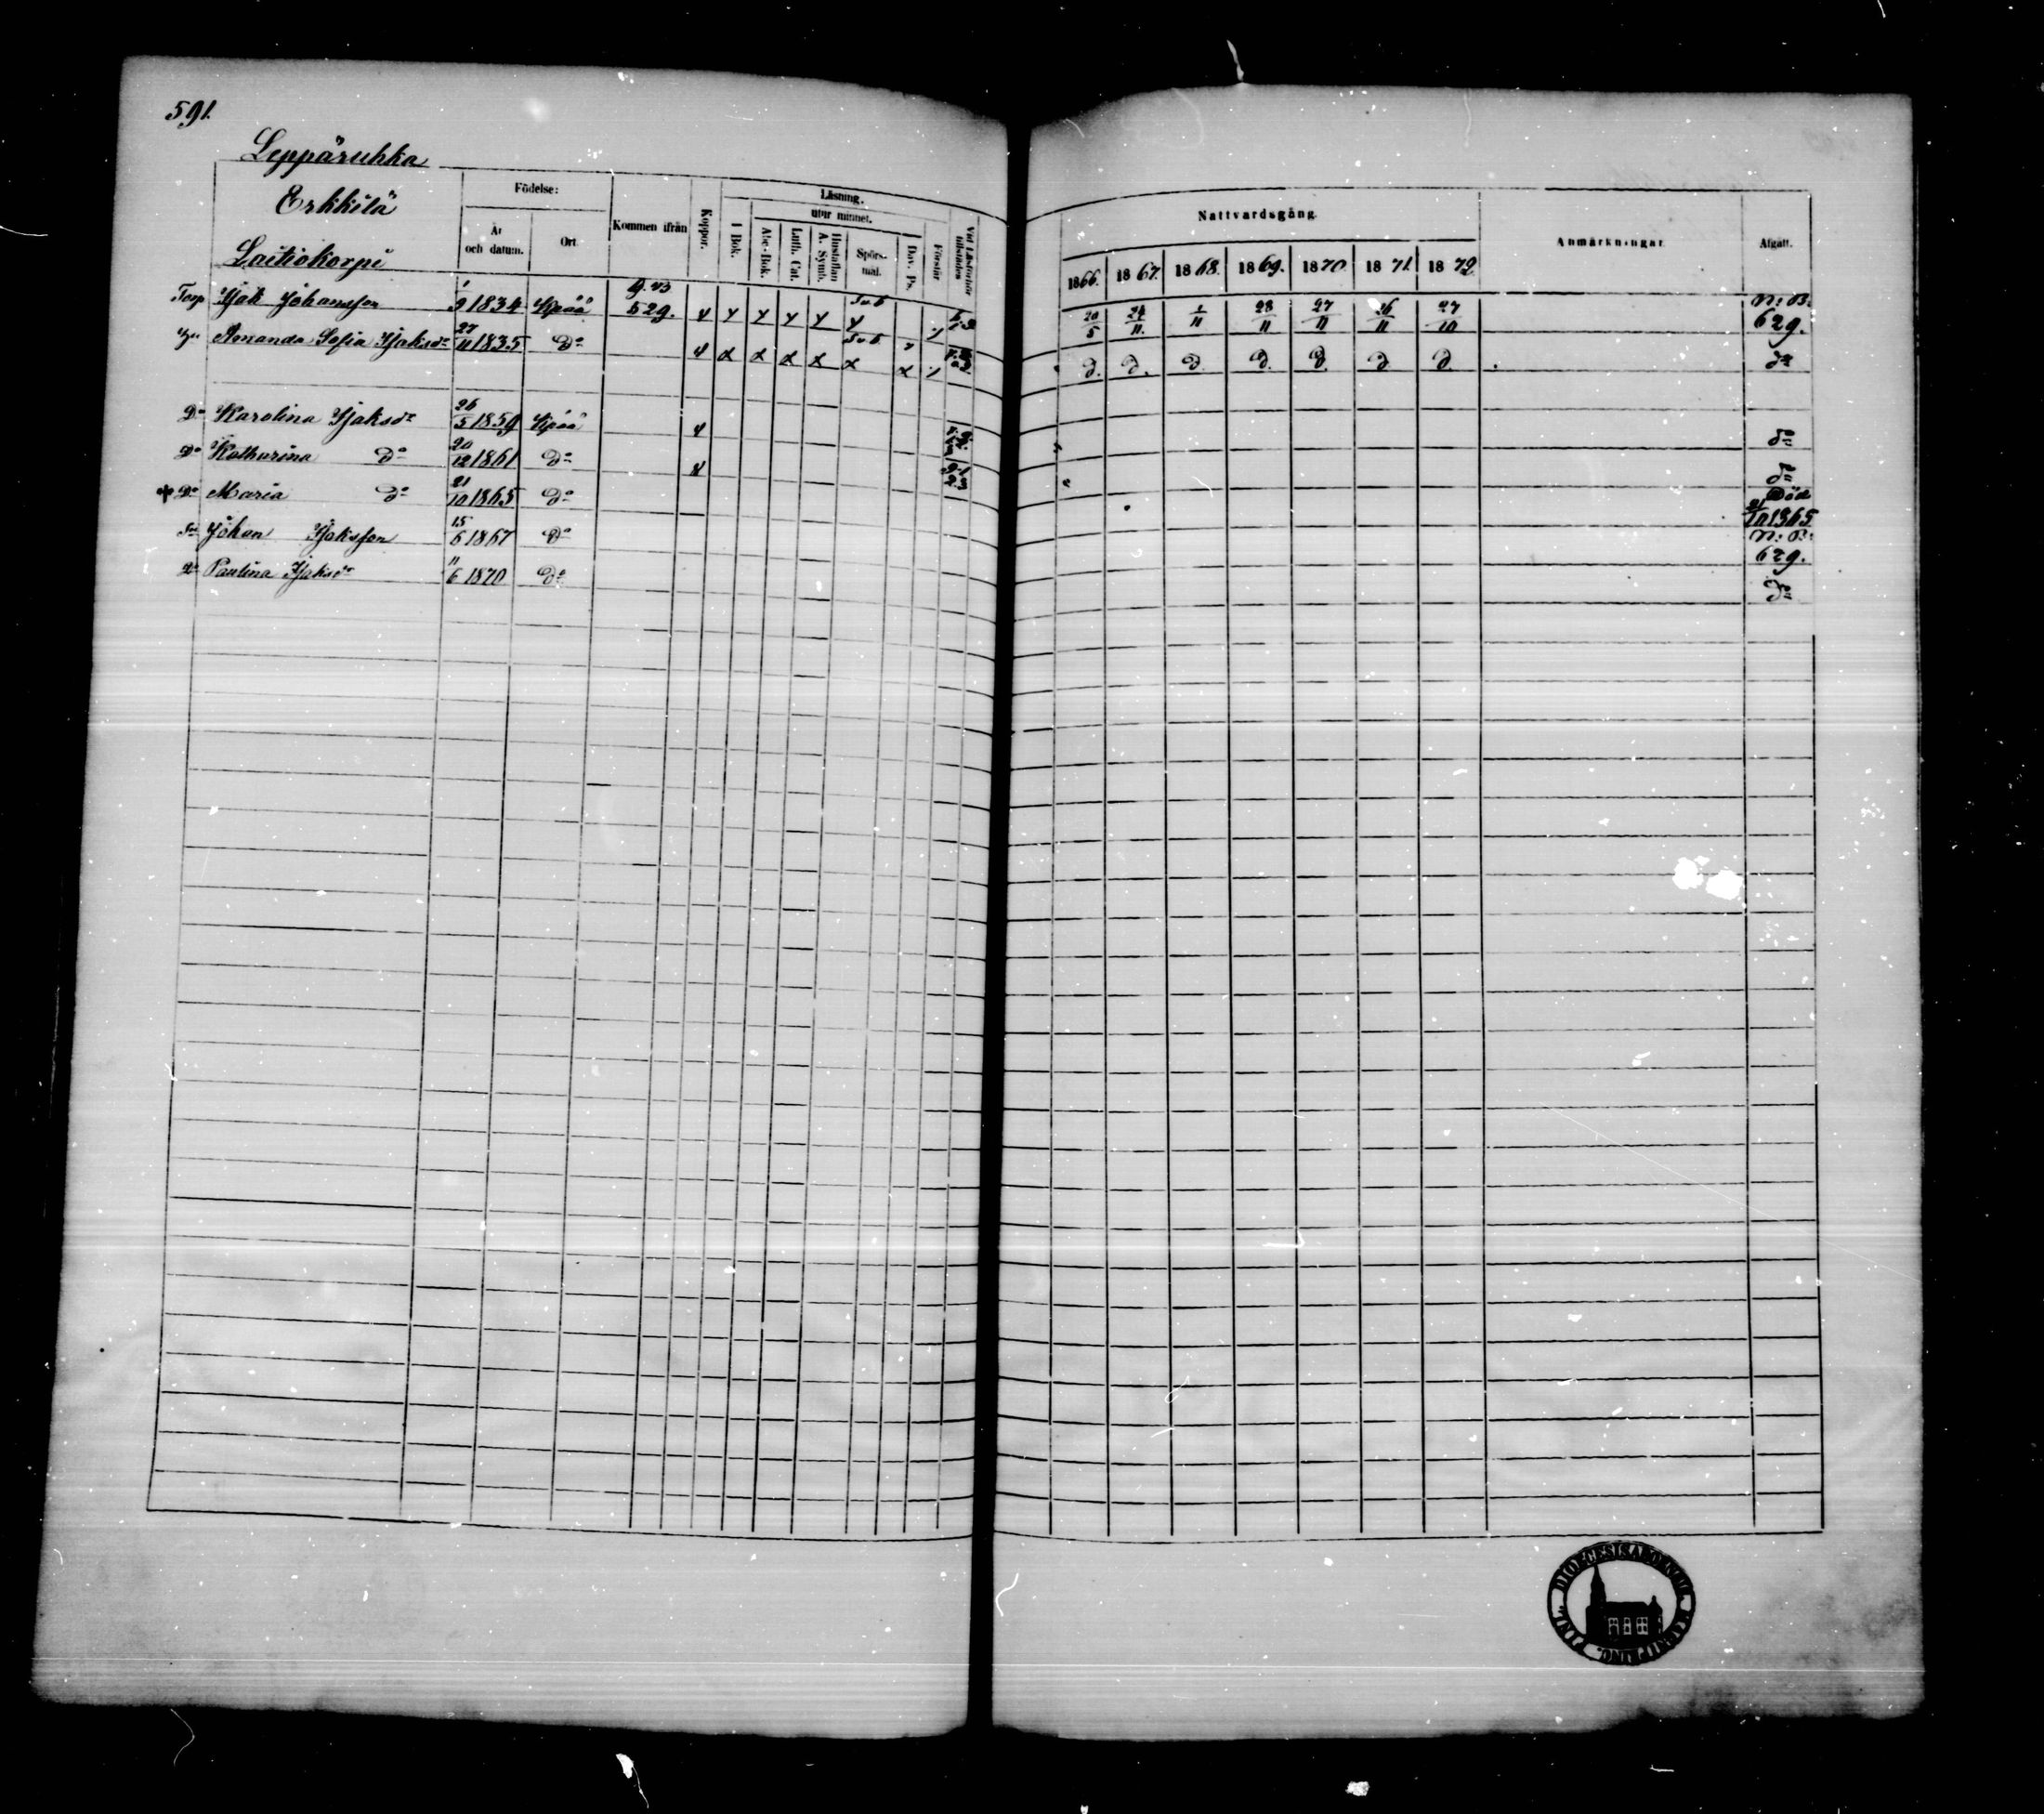 591.
Leppäruhka
Erkkilä
Laitiokorpi
Födelse:
År och datum.
Ort
Kommen ifrån
Koppor.
Läsning.
I Bok.
utur minnet.
Abc-Bok.
Luth. Cat.
Hustaflan A. Symb.
Spörs-mål.
Dav. Ps.
Förstår
Vid Läsförhör tillstädes
Nattvardsgång.
1866. 1867. 1868. 1869. 1870. 1871. 1872.
Anmärkningar.
Afgått.
Torp Isak Johansson 1/9 1834 529. 20/5 24/11. 1/11 28/11 27/11 26/11 27/10 N: B: 629.
Amanda Sofia Isaksdr 27/11 1835 Do D. D. D. D. D. D. D. do
Dr Karolina Isaksdr 26/5 1859 do
Dr Katharina Do 20/12 1861 Do do
Dr Maria Do 21/10 1865 Do Död 1865
Sn Johan Isaksson 15/6 1867 Do N: B: 629.
Dr Paulina Isaksdr 11/6 1870 Do do